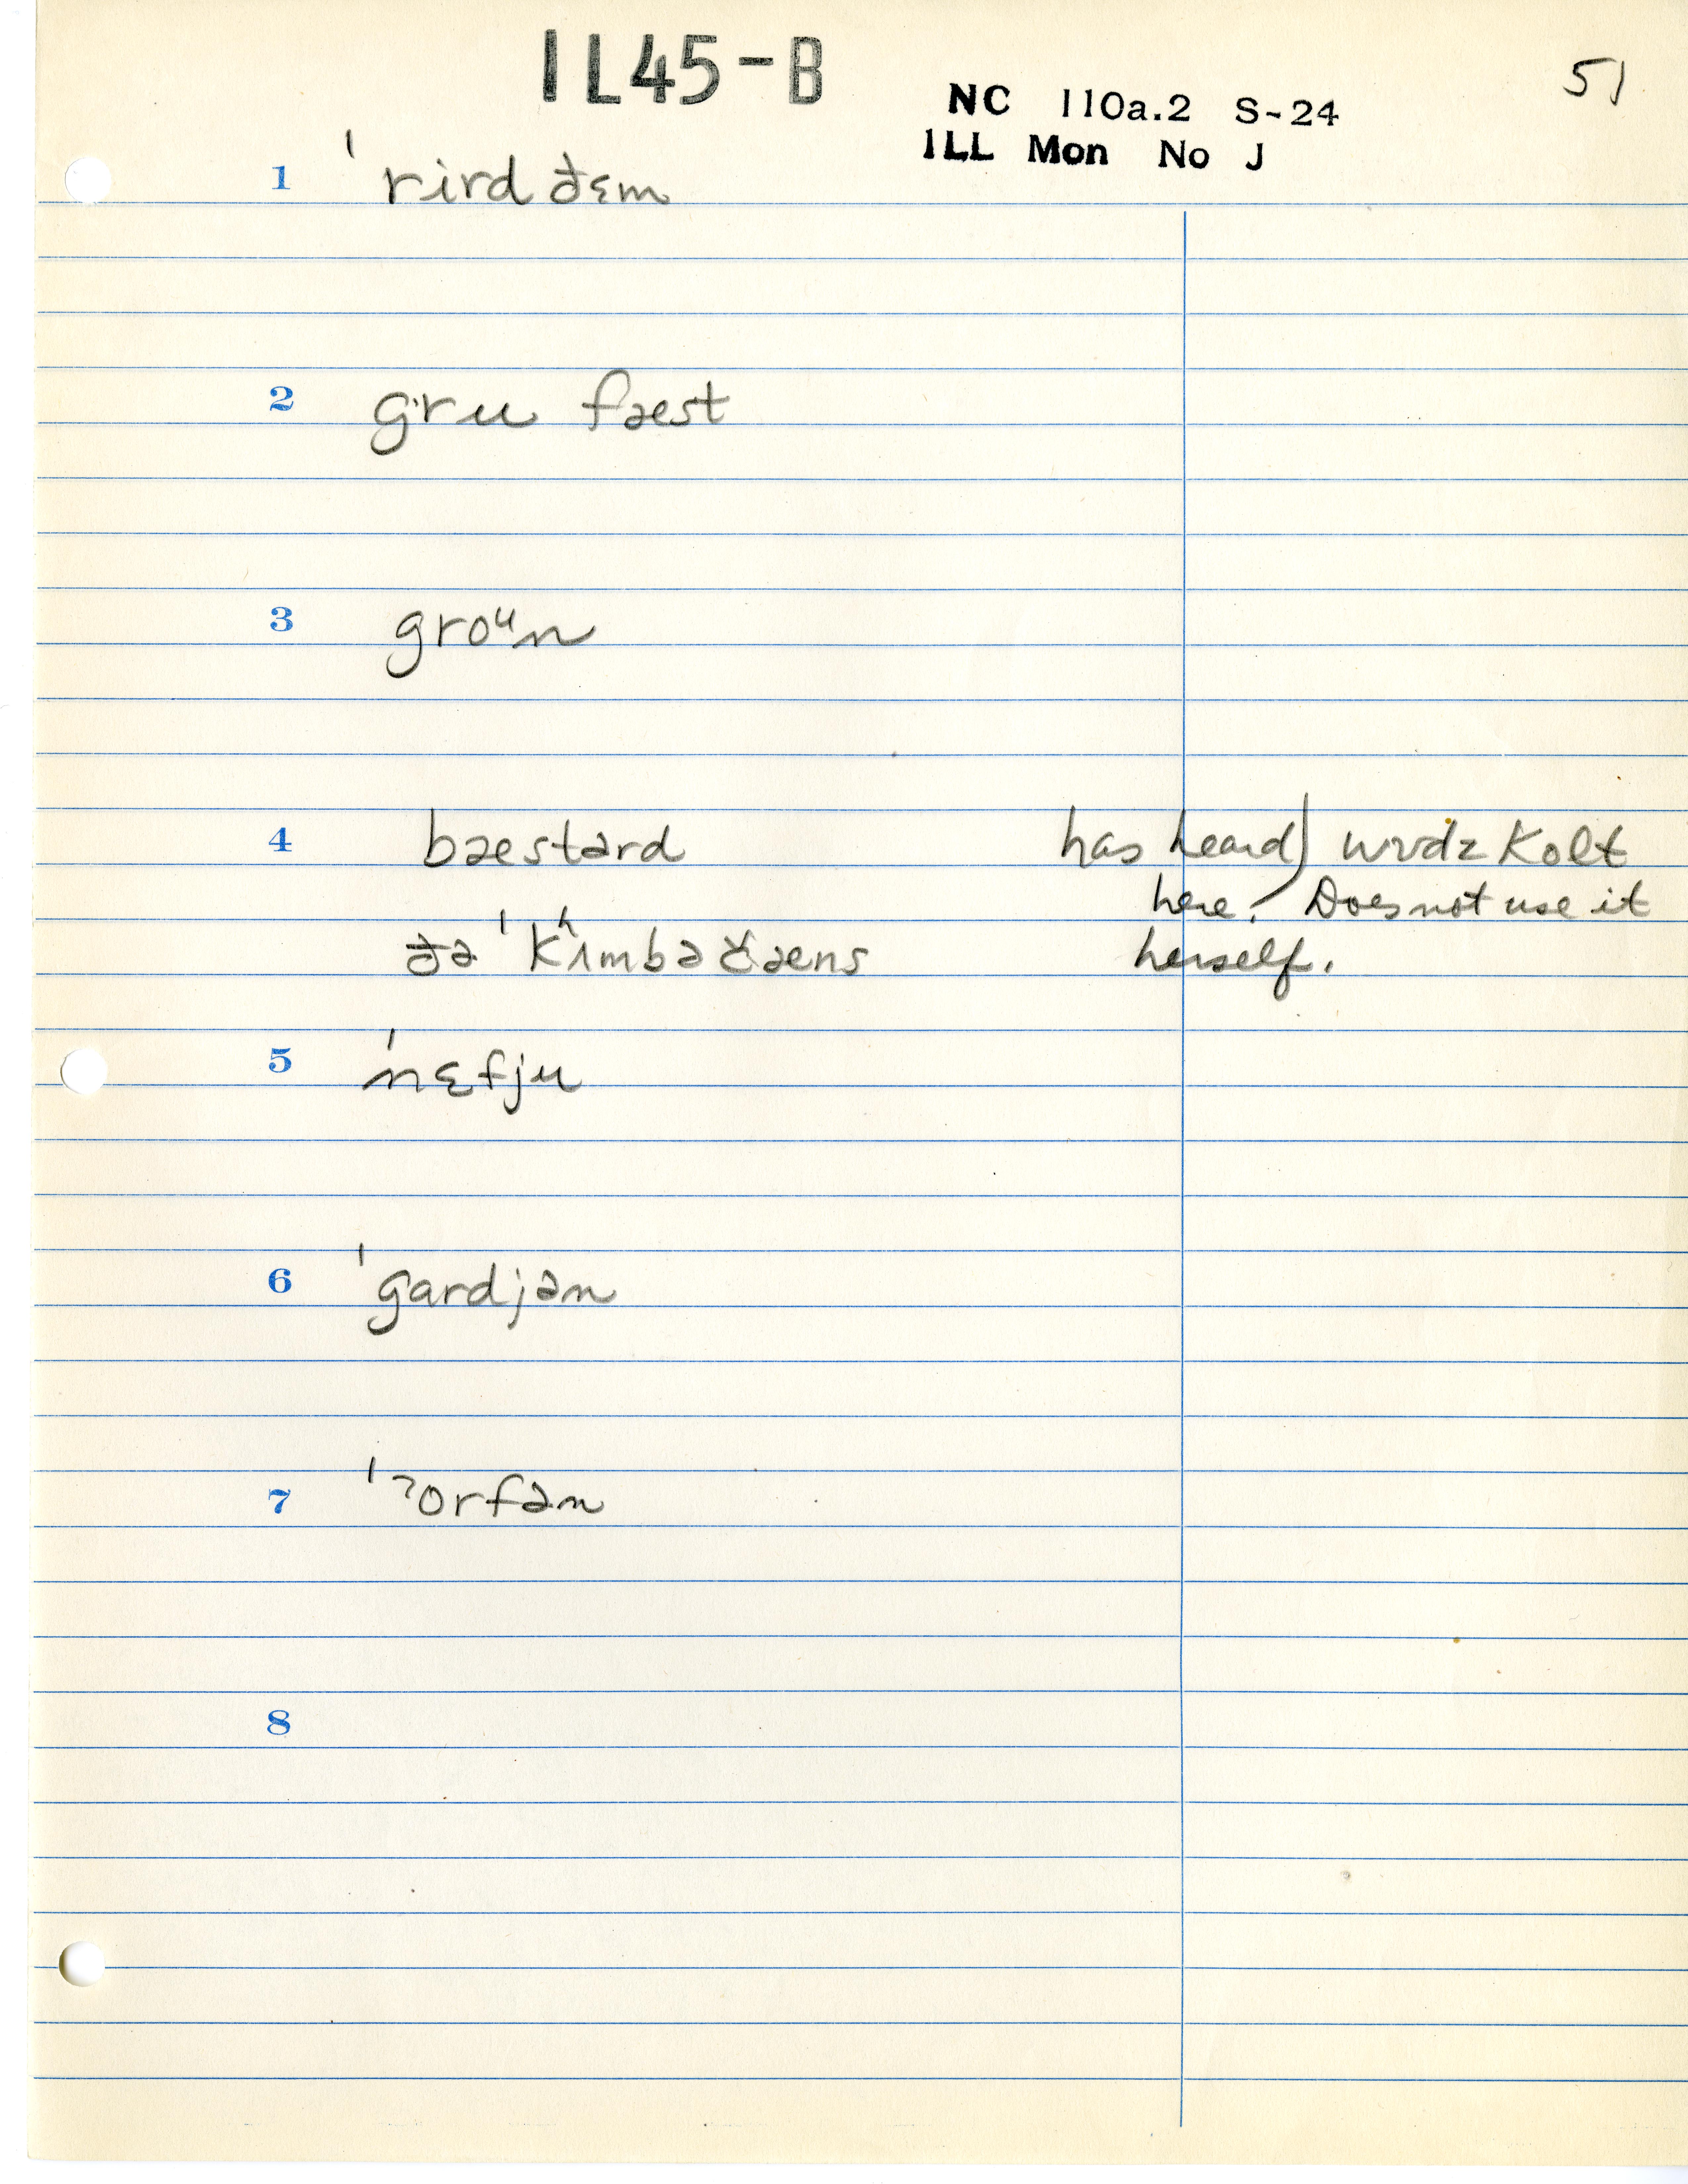 IL45-B
NC 110a.2 S-24
ILL Mon No J
51
1 ˈrird ðɛm
2 gru fæst
3 groᵘn
4 bæstərd has heard) wʊdz kolt
here. Does not use it
ðə ˈkʰʌmbəɹ̌æns herself.
5 ˈnɛfju
6 ˈgardjən
7 ˈʔorfən
8